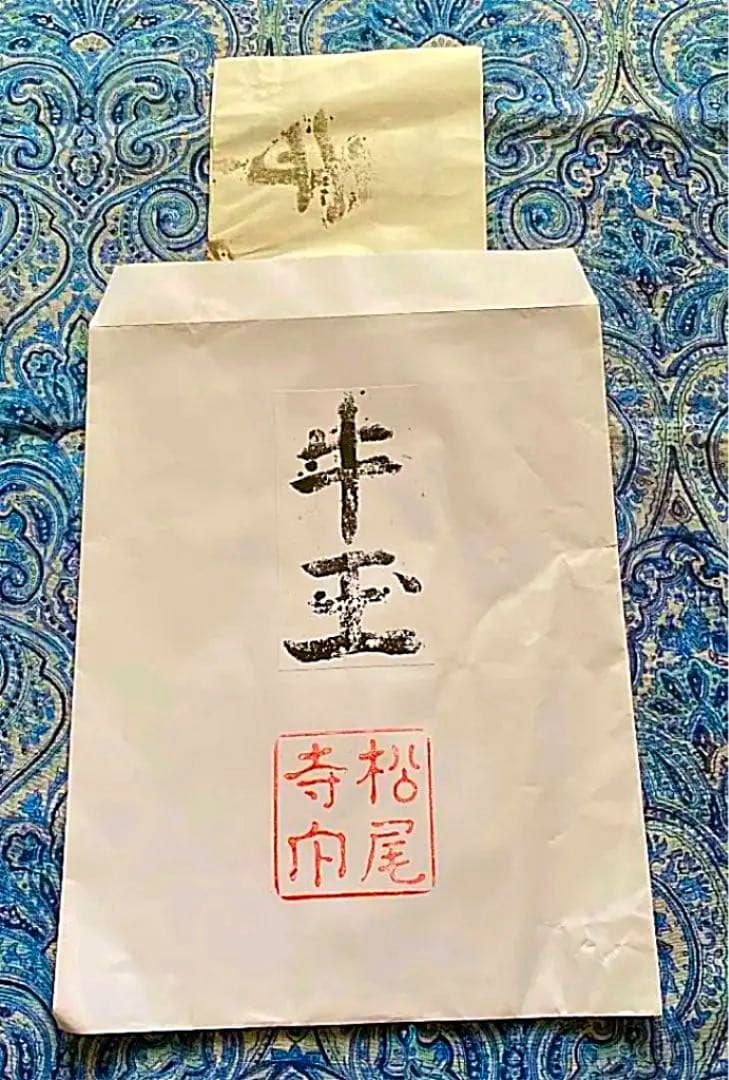 牛玉
松尾
寺印